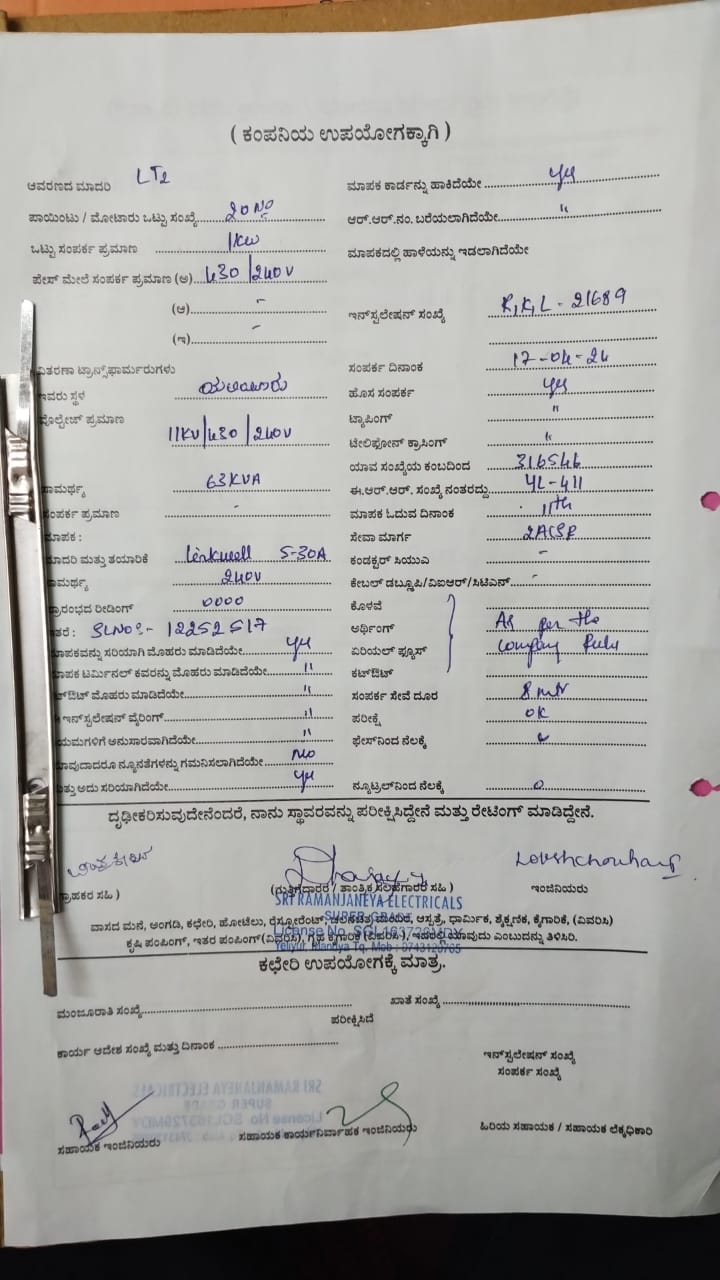 ( ಕಂಪನಿಯ ಉಪಯೋಗಕ್ಕಾಗಿ )
ಆವರಣದ ಮಾದರಿ LT2
ಪಾಯಿಂಟು / ಮೋಟಾರು ಒಟ್ಟು ಸಂಖ್ಯೆ 20 No
ಒಟ್ಟು ಸಂಪರ್ಕ ಪ್ರಮಾಣ 1kw
ಫೇಸ್ ಮೇಲೆ ಸಂಪರ್ಕ ಪ್ರಮಾಣ (ಅ) 430/240V
(ಆ) -
(ಇ) -
ವಿತರಣಾ ಟ್ರಾನ್ಸ್‌ಫಾರ್ಮರುಗಳು
ಇವರು ಸ್ಥಳ
ವೊಲ್ಟೇಜ್ ಪ್ರಮಾಣ 11KV/430/240V
ಸಾಮರ್ಥ್ಯ 63KVA
ಸಂಪರ್ಕ ಪ್ರಮಾಣ -
ಮಾಪಕ :
ಮಾದರಿ ಮತ್ತು ತಯಾರಿಕೆ Linkwell 5-30A
ಸಾಮರ್ಥ್ಯ 240V
ಪ್ರಾರಂಭದ ರೀಡಿಂಗ್ 0000
ಇತರೆ : SLNO:- 12252517
ಮಾಪಕವನ್ನು ಸರಿಯಾಗಿ ಮೊಹರು ಮಾಡಿದೆಯೇ yes
ಮಾಪಕ ಟರ್ಮಿನಲ್ ಕವರನ್ನು ಮೊಹರು ಮಾಡಿದೆಯೇ "
ಕಟ್‌ಔಟ್ ಮೊಹರು ಮಾಡಿದೆಯೇ "
ಇನ್‌ಸ್ಟಲೇಷನ್ ವೈರಿಂಗ್ "
ನಿಯಮಗಳಿಗೆ ಅನುಸಾರವಾಗಿದೆಯೇ "
ಯಾವುದಾದರೂ ನ್ಯೂನತೆಗಳನ್ನು ಗಮನಿಸಲಾಗಿದೆಯೇ No
ಮತ್ತು ಅದು ಸರಿಯಾಗಿದೆಯೇ yes
ಮಾಪಕ ಕಾರ್ಡನ್ನು ಹಾಕಿದೆಯೇ yes
ಆರ್.ಆರ್.ನಂ. ಬರೆಯಲಾಗಿದೆಯೇ "
ಮಾಪಕದಲ್ಲಿ ಹಾಳೆಯನ್ನು ಇಡಲಾಗಿದೆಯೇ
ಇನ್‌ಸ್ಟಲೇಷನ್ ಸಂಖ್ಯೆ K,K,L - 21689
ಸಂಪರ್ಕ ದಿನಾಂಕ 17-04-24
ಹೊಸ ಸಂಪರ್ಕ yes
ಟ್ಯಾಪಿಂಗ್ "
ಟೇಲಿಫೋನ್ ಕ್ರಾಸಿಂಗ್ "
ಯಾವ ಸಂಖ್ಯೆಯ ಕಂಬದಿಂದ 316546
ಈ.ಆರ್.ಆರ್. ಸಂಖ್ಯೆ ನಂತರದ್ದು YL-411
ಮಾಪಕ ಓದುವ ದಿನಾಂಕ 11th
ಸೇವಾ ಮಾರ್ಗ 2ACSR
ಕಂಡಕ್ಟರ್ ಸಿಯುಎ -
ಕೇಬಲ್ ಡಬ್ಲ್ಯೂಪಿ/ವಿಐಆರ್/ಸಿಟಿಎಸ್ -
ಕೊಳವೆ
ಅರ್ಥಿಂಗ್ As per the
ಏರಿಯಲ್ ಫ್ಯೂಸ್ company Rules
ಕಟ್‌ಔಟ್
ಸಂಪರ್ಕ ಸೇವೆ ದೂರ 8 mtr
ಪರೀಕ್ಷೆ OK
ಫೇಸ್‌ನಿಂದ ನೆಲಕ್ಕೆ
ನ್ಯೂಟ್ರಲ್‌ನಿಂದ ನೆಲಕ್ಕೆ 0
ದೃಢೀಕರಿಸುವುದೇನೆಂದರೆ, ನಾನು ಸ್ಥಾವರವನ್ನು ಪರೀಕ್ಷಿಸಿದ್ದೇನೆ ಮತ್ತು ರೇಟಿಂಗ್ ಮಾಡಿದ್ದೇನೆ.
ಗ್ರಾಹಕರ ಸಹಿ )
(ಗುತ್ತಿಗೆದಾರರ / ತಾಂತ್ರಿಕ ಸಲಹೆಗಾರರ ಸಹಿ )
ಇಂಜಿನಿಯರು
SRI RAMANJANEYA ELECTRICALS
SUPER GRADE
License No. SGL163726MDY
Yeliyur, Mandya Tq.
ವಾಸದ ಮನೆ, ಅಂಗಡಿ, ಕಛೇರಿ, ಹೋಟೆಲು, ರೆಸ್ಟೋರೆಂಟ್, ಚಲನಚಿತ್ರ ಮಂದಿರ, ಆಸ್ಪತ್ರೆ, ಧಾರ್ಮಿಕ, ಶೈಕ್ಷಣಿಕ, ಕೈಗಾರಿಕೆ, (ವಿವರಿಸಿ)
ಕೃಷಿ ಪಂಪಿಂಗ್, ಇತರ ಪಂಪಿಂಗ್(ವಿವರಿಸಿ), ಗೃಹ ಕೈಗಾರಿಕೆ (ವಿವರಿಸಿ), ಇವರಲ್ಲಿ ಯಾವುದು ಎಂಬುದನ್ನು ತಿಳಿಸಿರಿ.
ಕಛೇರಿ ಉಪಯೋಗಕ್ಕೆ ಮಾತ್ರ.
ಮಂಜೂರಾತಿ ಸಂಖ್ಯೆ ಖಾತೆ ಸಂಖ್ಯೆ
ಪರೀಕ್ಷಿಸಿದೆ
ಕಾರ್ಯ ಆದೇಶ ಸಂಖ್ಯೆ ಮತ್ತು ದಿನಾಂಕ
ಇನ್‌ಸ್ಟಲೇಷನ್ ಸಂಖ್ಯೆ
ಸಂಪರ್ಕ ಸಂಖ್ಯೆ
ಸಹಾಯಕ ಇಂಜಿನಿಯರು
ಸಹಾಯಕ ಕಾರ್ಯನಿರ್ವಾಹಕ ಇಂಜಿನಿಯರು
ಹಿರಿಯ ಸಹಾಯಕ / ಸಹಾಯಕ ಲೆಕ್ಕಧಿಕಾರಿ